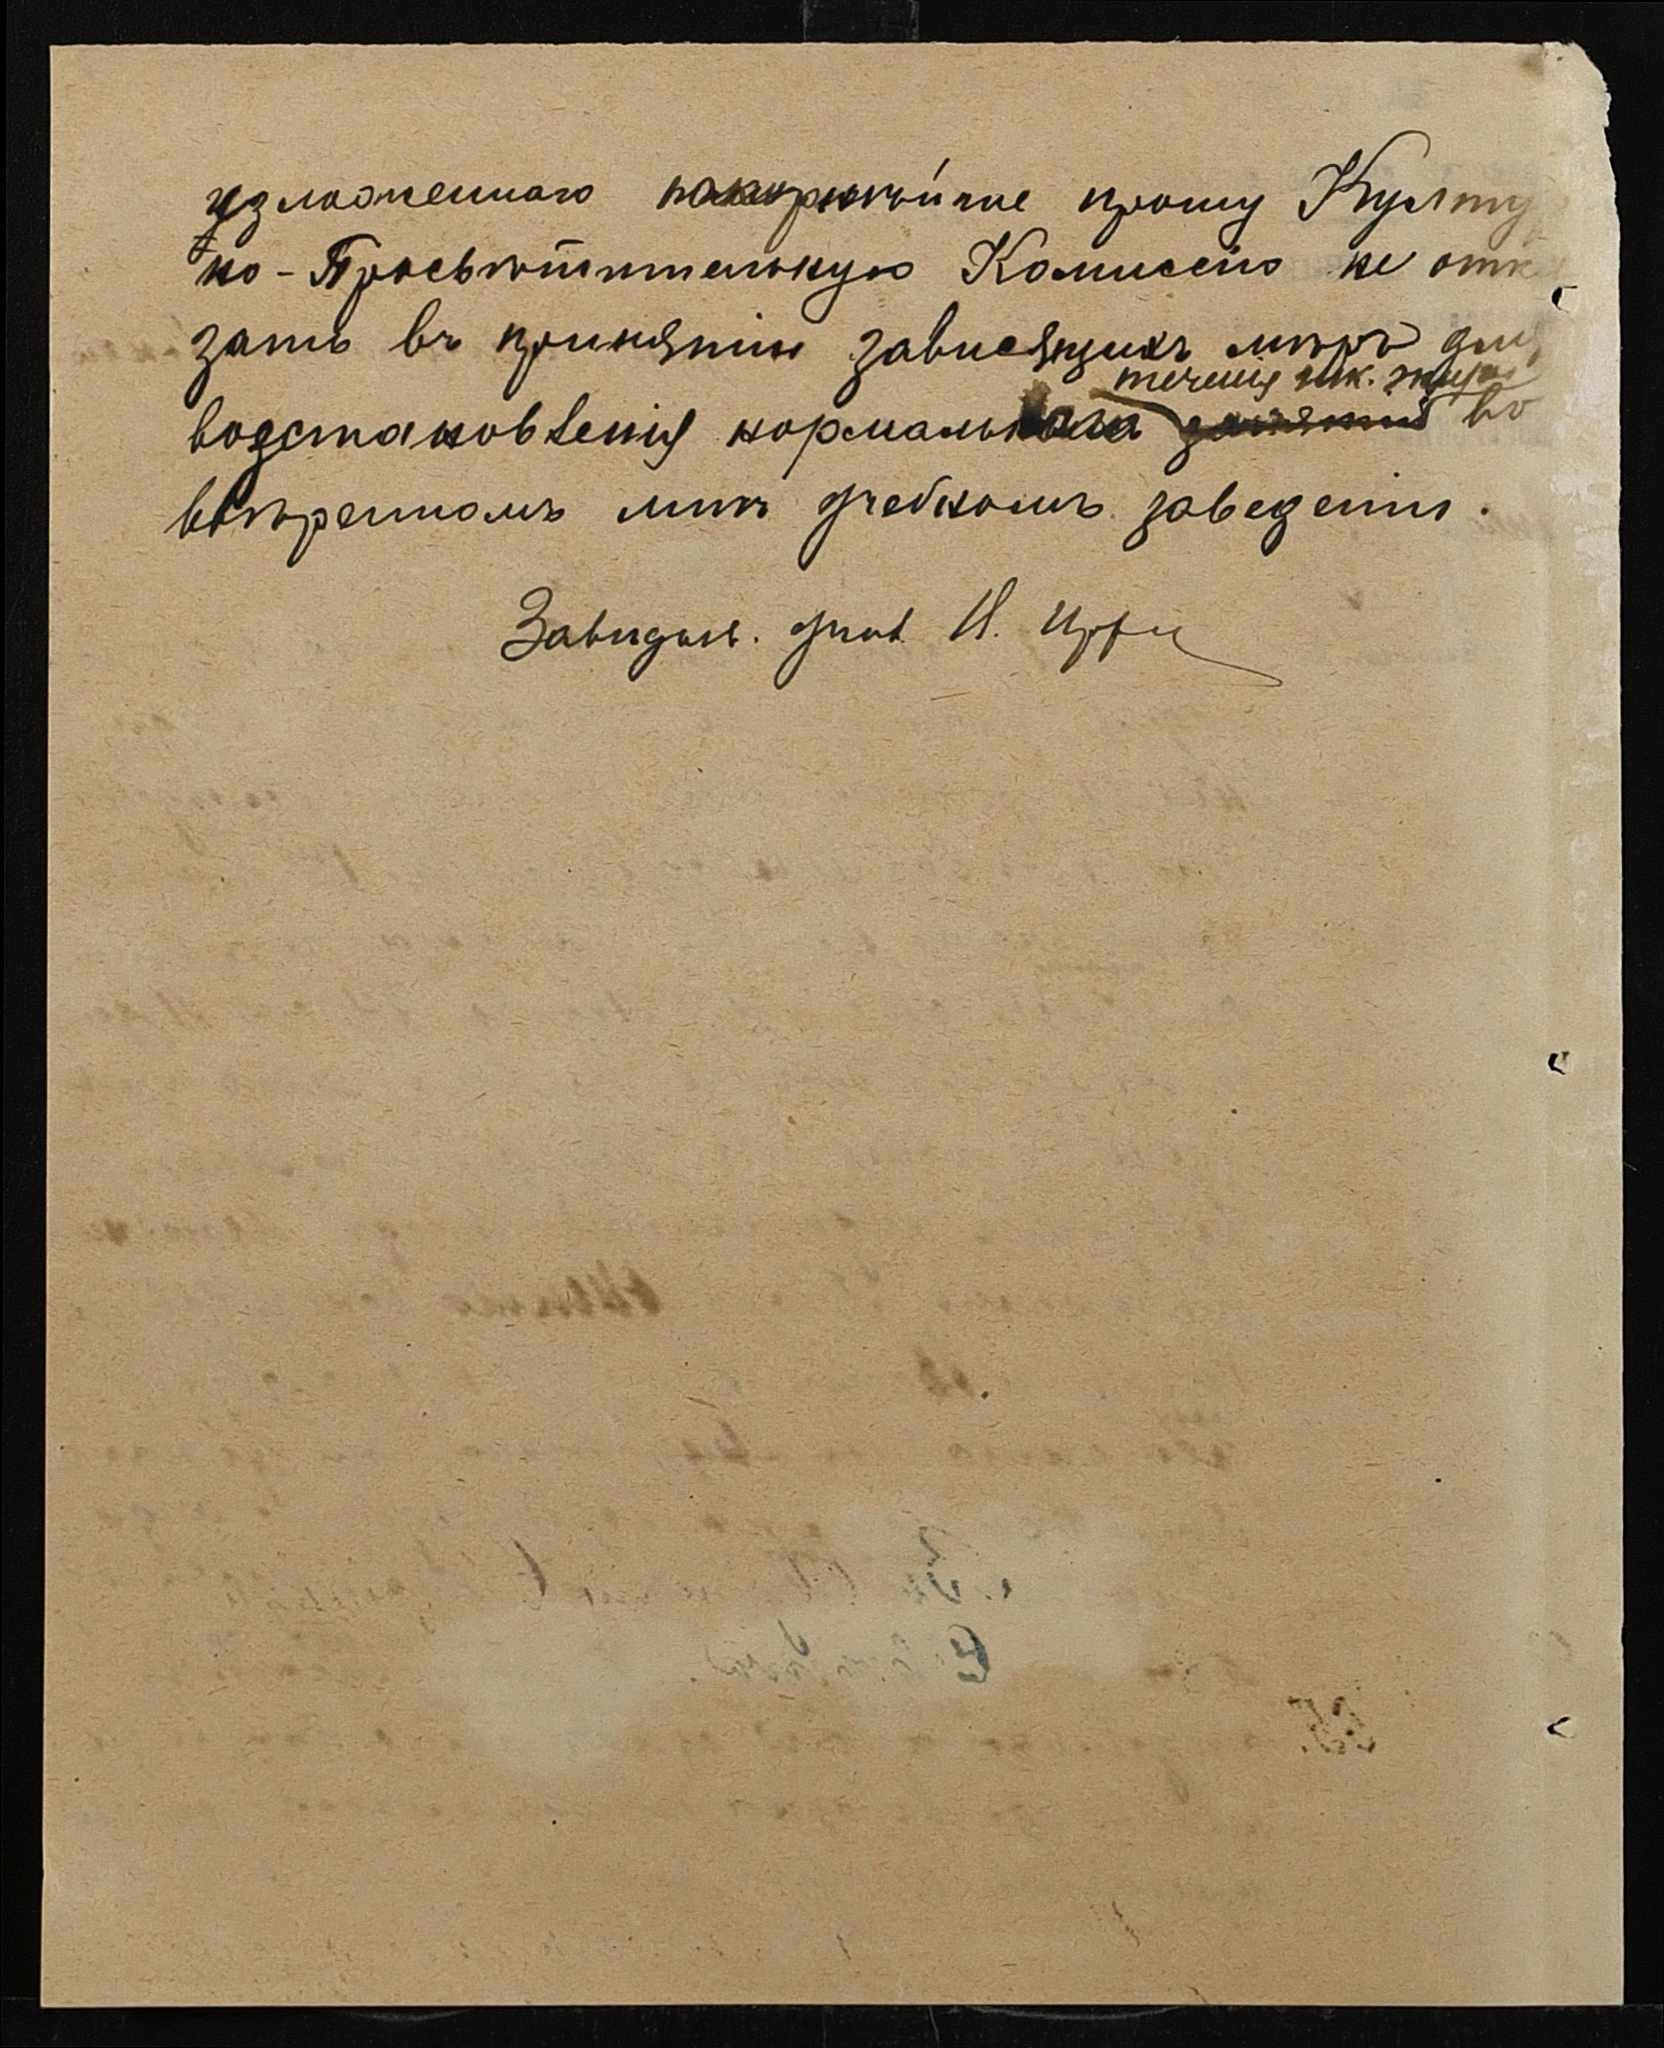 изложеннаго покорнѣйше прошу Культу
но-Просвѣтительную Комиссію не отка
зать въ принятіи зависящихъ мѣръ для
теченія шк. жизни
возстановленія нормальнаго занятій во
ввѣренномъ мнѣ учебномъ заведеніи.
Завидыв. учил. И.